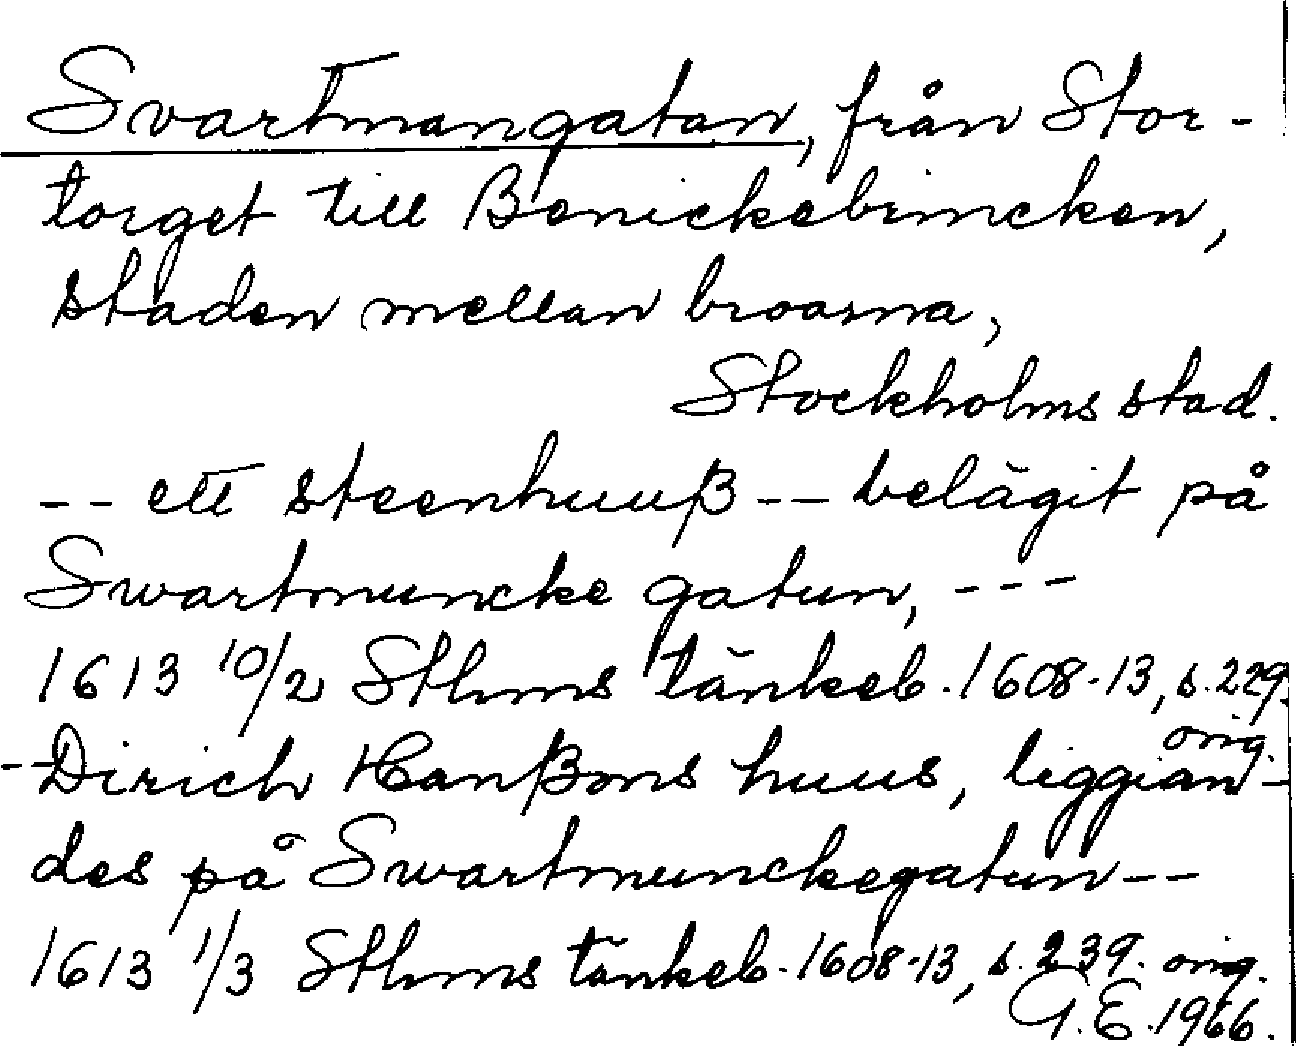 Svartmangatan, från Stor-
torget till Benickebrincken,
staden mellan broarna,
Stockholms stad.
-- ett steenhuuß -- belägit på
Swartmuncke gatun, ---
1613 10/2 Sthms tänkeb. 1608-13, s. 229.
orig.
-- Dirich Hanßons huus, liggian-
des på Swartmunckegatun --
1613 1/3 Sthms tänkeb. 1608-13, s. 239. orig.
G.E. 1966.